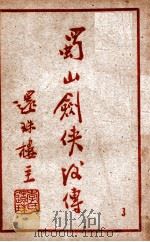 蜀山劍俠後傳
還珠樓主
3